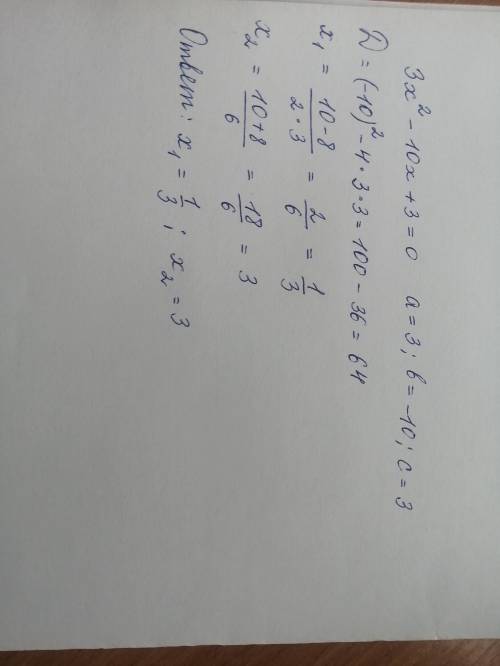 3x² - 10x + 3 = 0   a = 3; b = -10; c = 3
D = (-10)² - 4·3·3 = 100 - 36 = 64
x₁ = (10-8)/(2·3) = 2/6 = 1/3
x₂ = (10+8)/6 = 18/6 = 3
Ответ: x₁ = 1/3; x₂ = 3